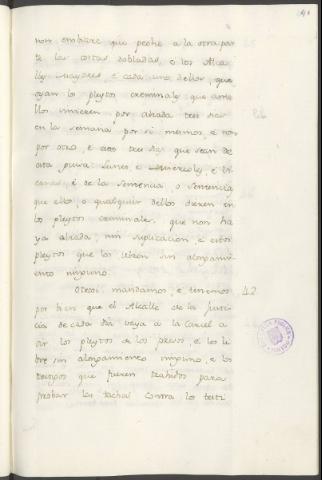 non embarge que peche a la otra par
te las costas dobladas, e los Alca
lles mayores e cada uno dellos, que
oyan los pleytos creminales que ante
ellos vinieren por alzada tres dias
en la semana por si mesmos, e non
por otro, e estos tres dias que sean de
esta guisa Lunes e Miercoles e Vi
ernes, e de la sentencia, o sentencias
que ellos o qualquier dellos dieren en
los pleytos creminales, que non ha
ya alzada, nin suplicacion, e estos
pleytos que los libren sin alongami
ento ninguno.
Otrosi mandamos, e tenemos 42
por bien que el Alcalle de la Justi
cia de cada dia vaya a la Carcel a
oir los pleytos de los presos, e los li
bre sin alongamiento ninguno, e los
testigos que fueren trahidos para
probar las tachas contra los testi